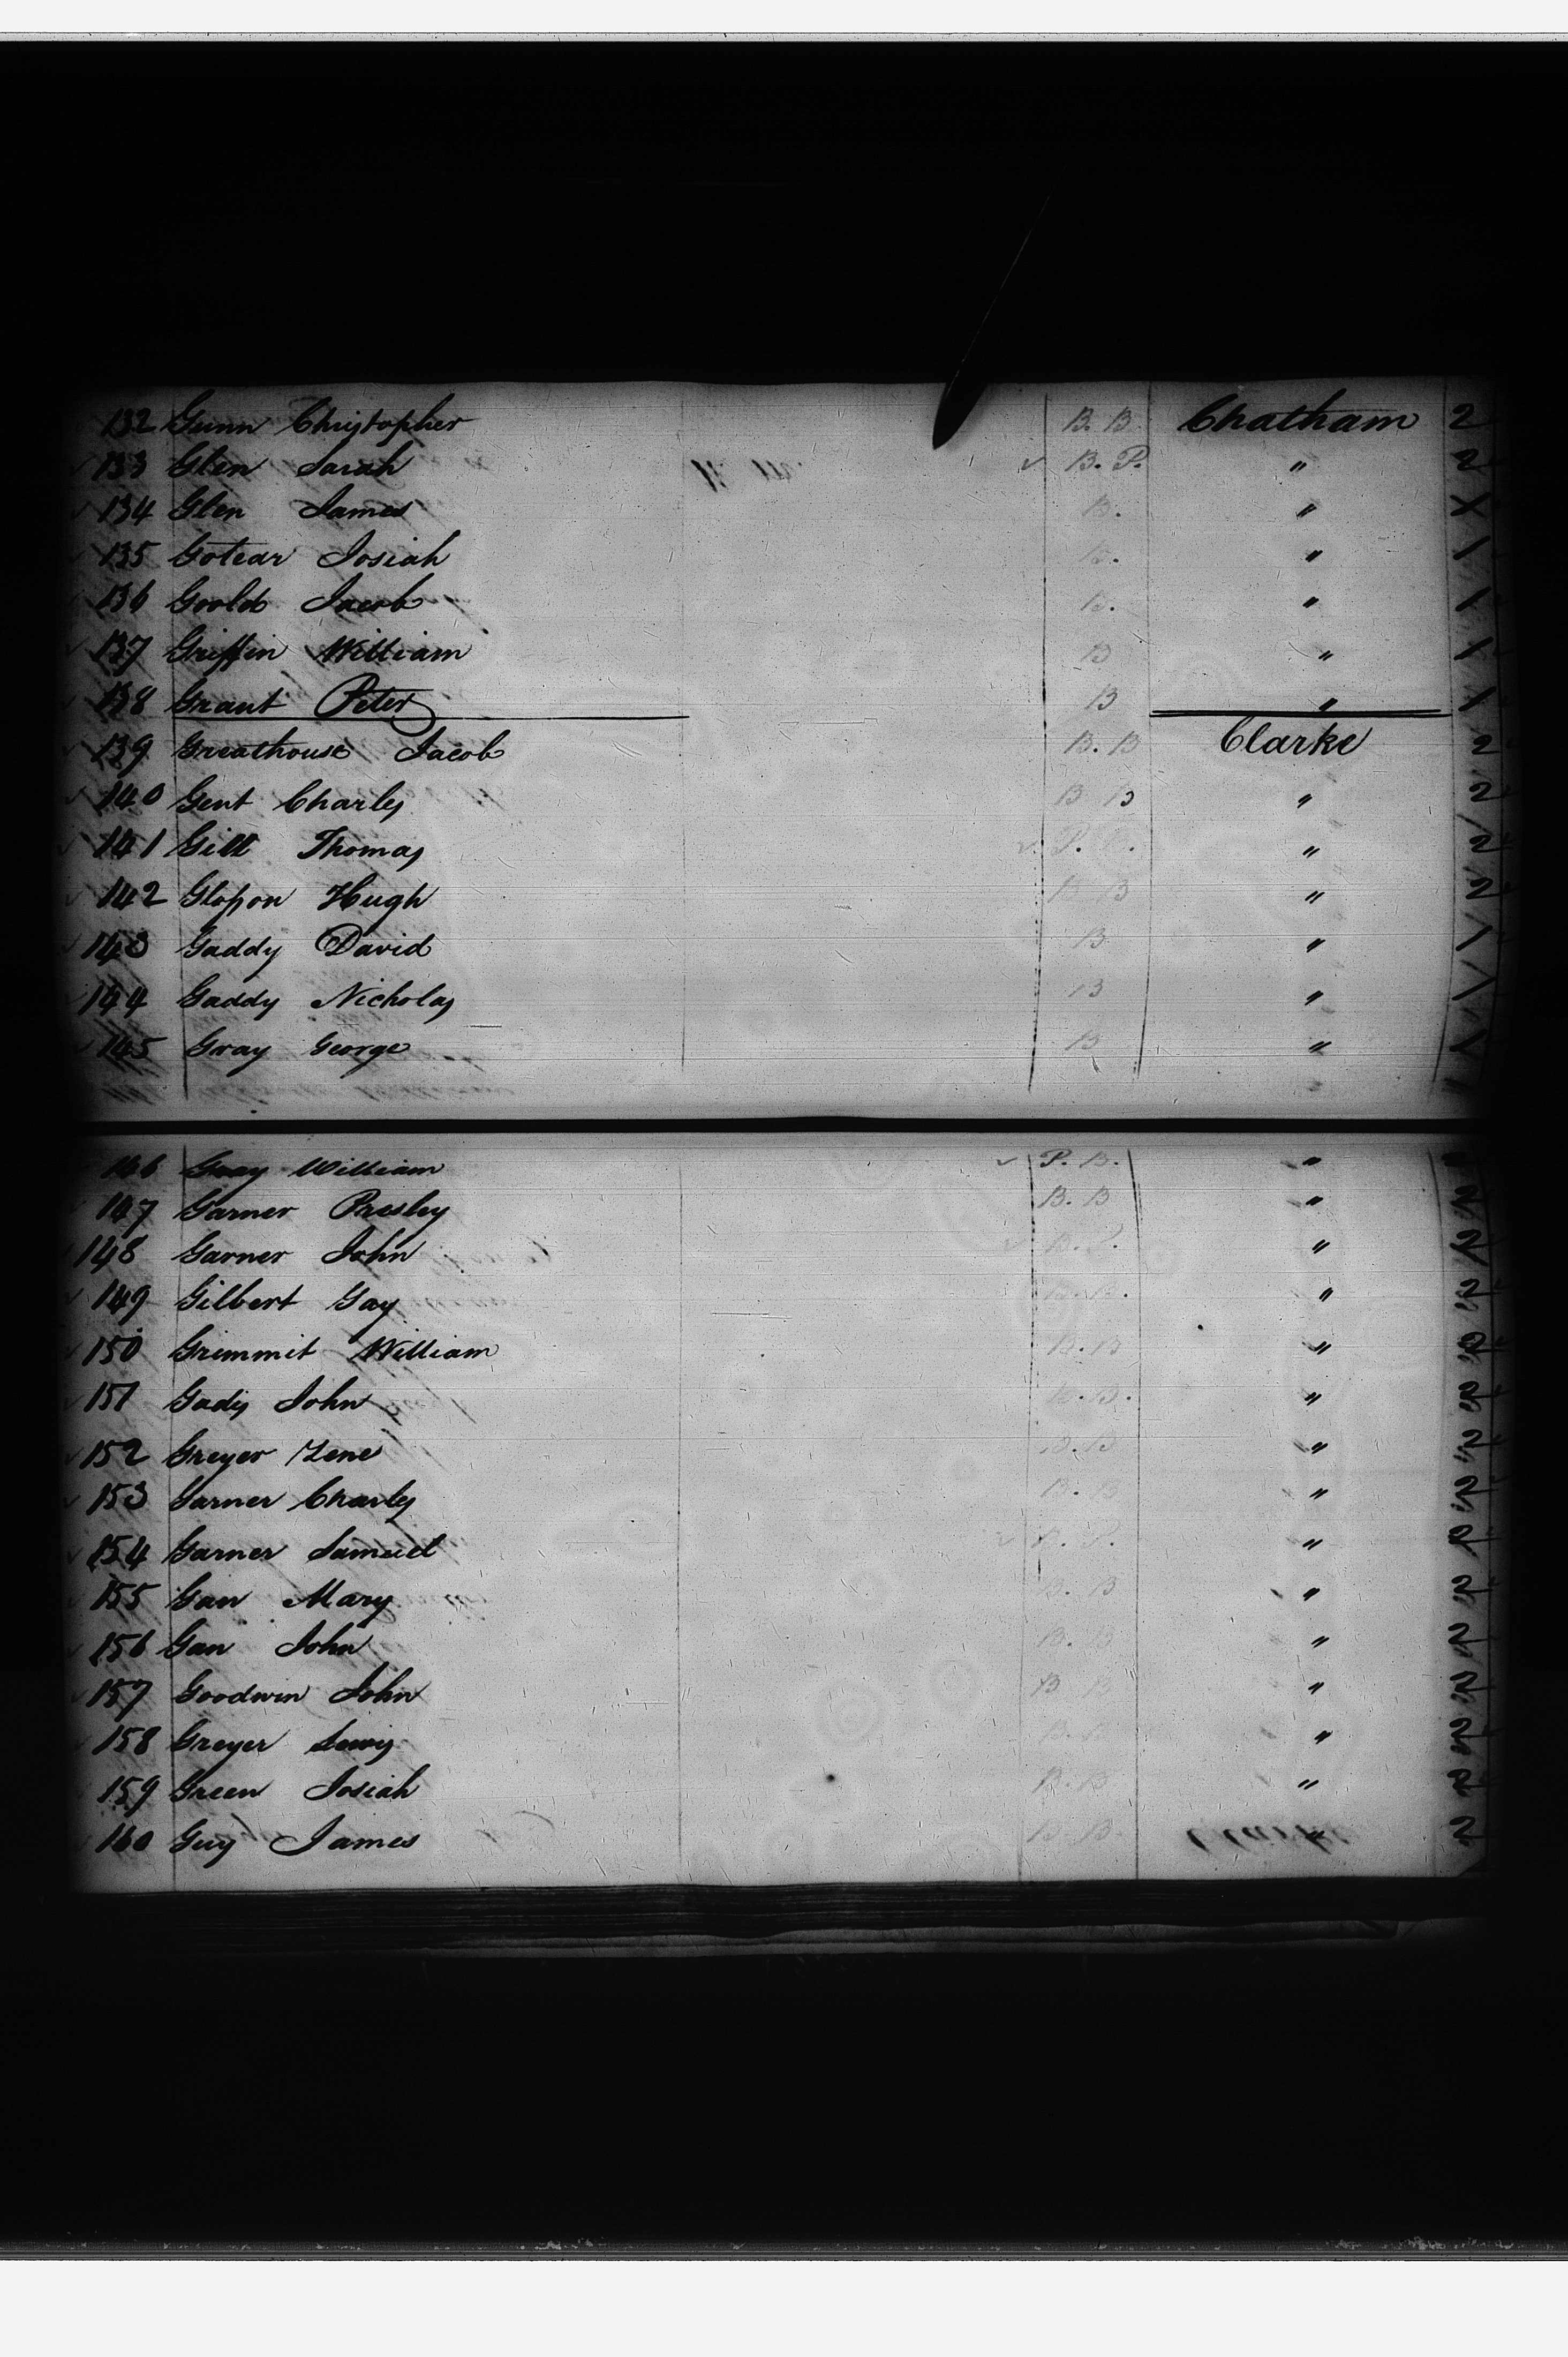 132 Gunn Christopher B. B Chatham 2
133 Glen Sarah B. P. " 2
134 Glen James B. " X
135 Gotear Josiah B. " 1
136 Goold Jacob B. " 1
137 Griffin William B " 1
138 Grant Peter B " 1
139 Greathouse Jacob B. B Clarke 2
140 Gent Charles B B " 2
141 Gill Thomas P. " 2
142 Hugh B B " 2
143 Gaddy David B " 1
144 Gaddy Nicholas B " 1
145 Gray George B " 1
146 Gray William P. B. "
147 Garner Presley B. B " 2
148 Garner John B. " 2
149 Gilbert Gay B. B. " 2
150 Grimmit William B. B " 2
151 John B. B. " 2
152 Greyer Zene B. B " 2
153 Garner Charles B. B " 2
154 Garner Samuel " 2
155 Gan Mary B. B " 2
156 Gan John B. B " 2
157 Goodwin John B B " 2
158 Greyer Lewis B. B " 2
159 Green Josiah B. B " 2
160 Guy James B. B " 2